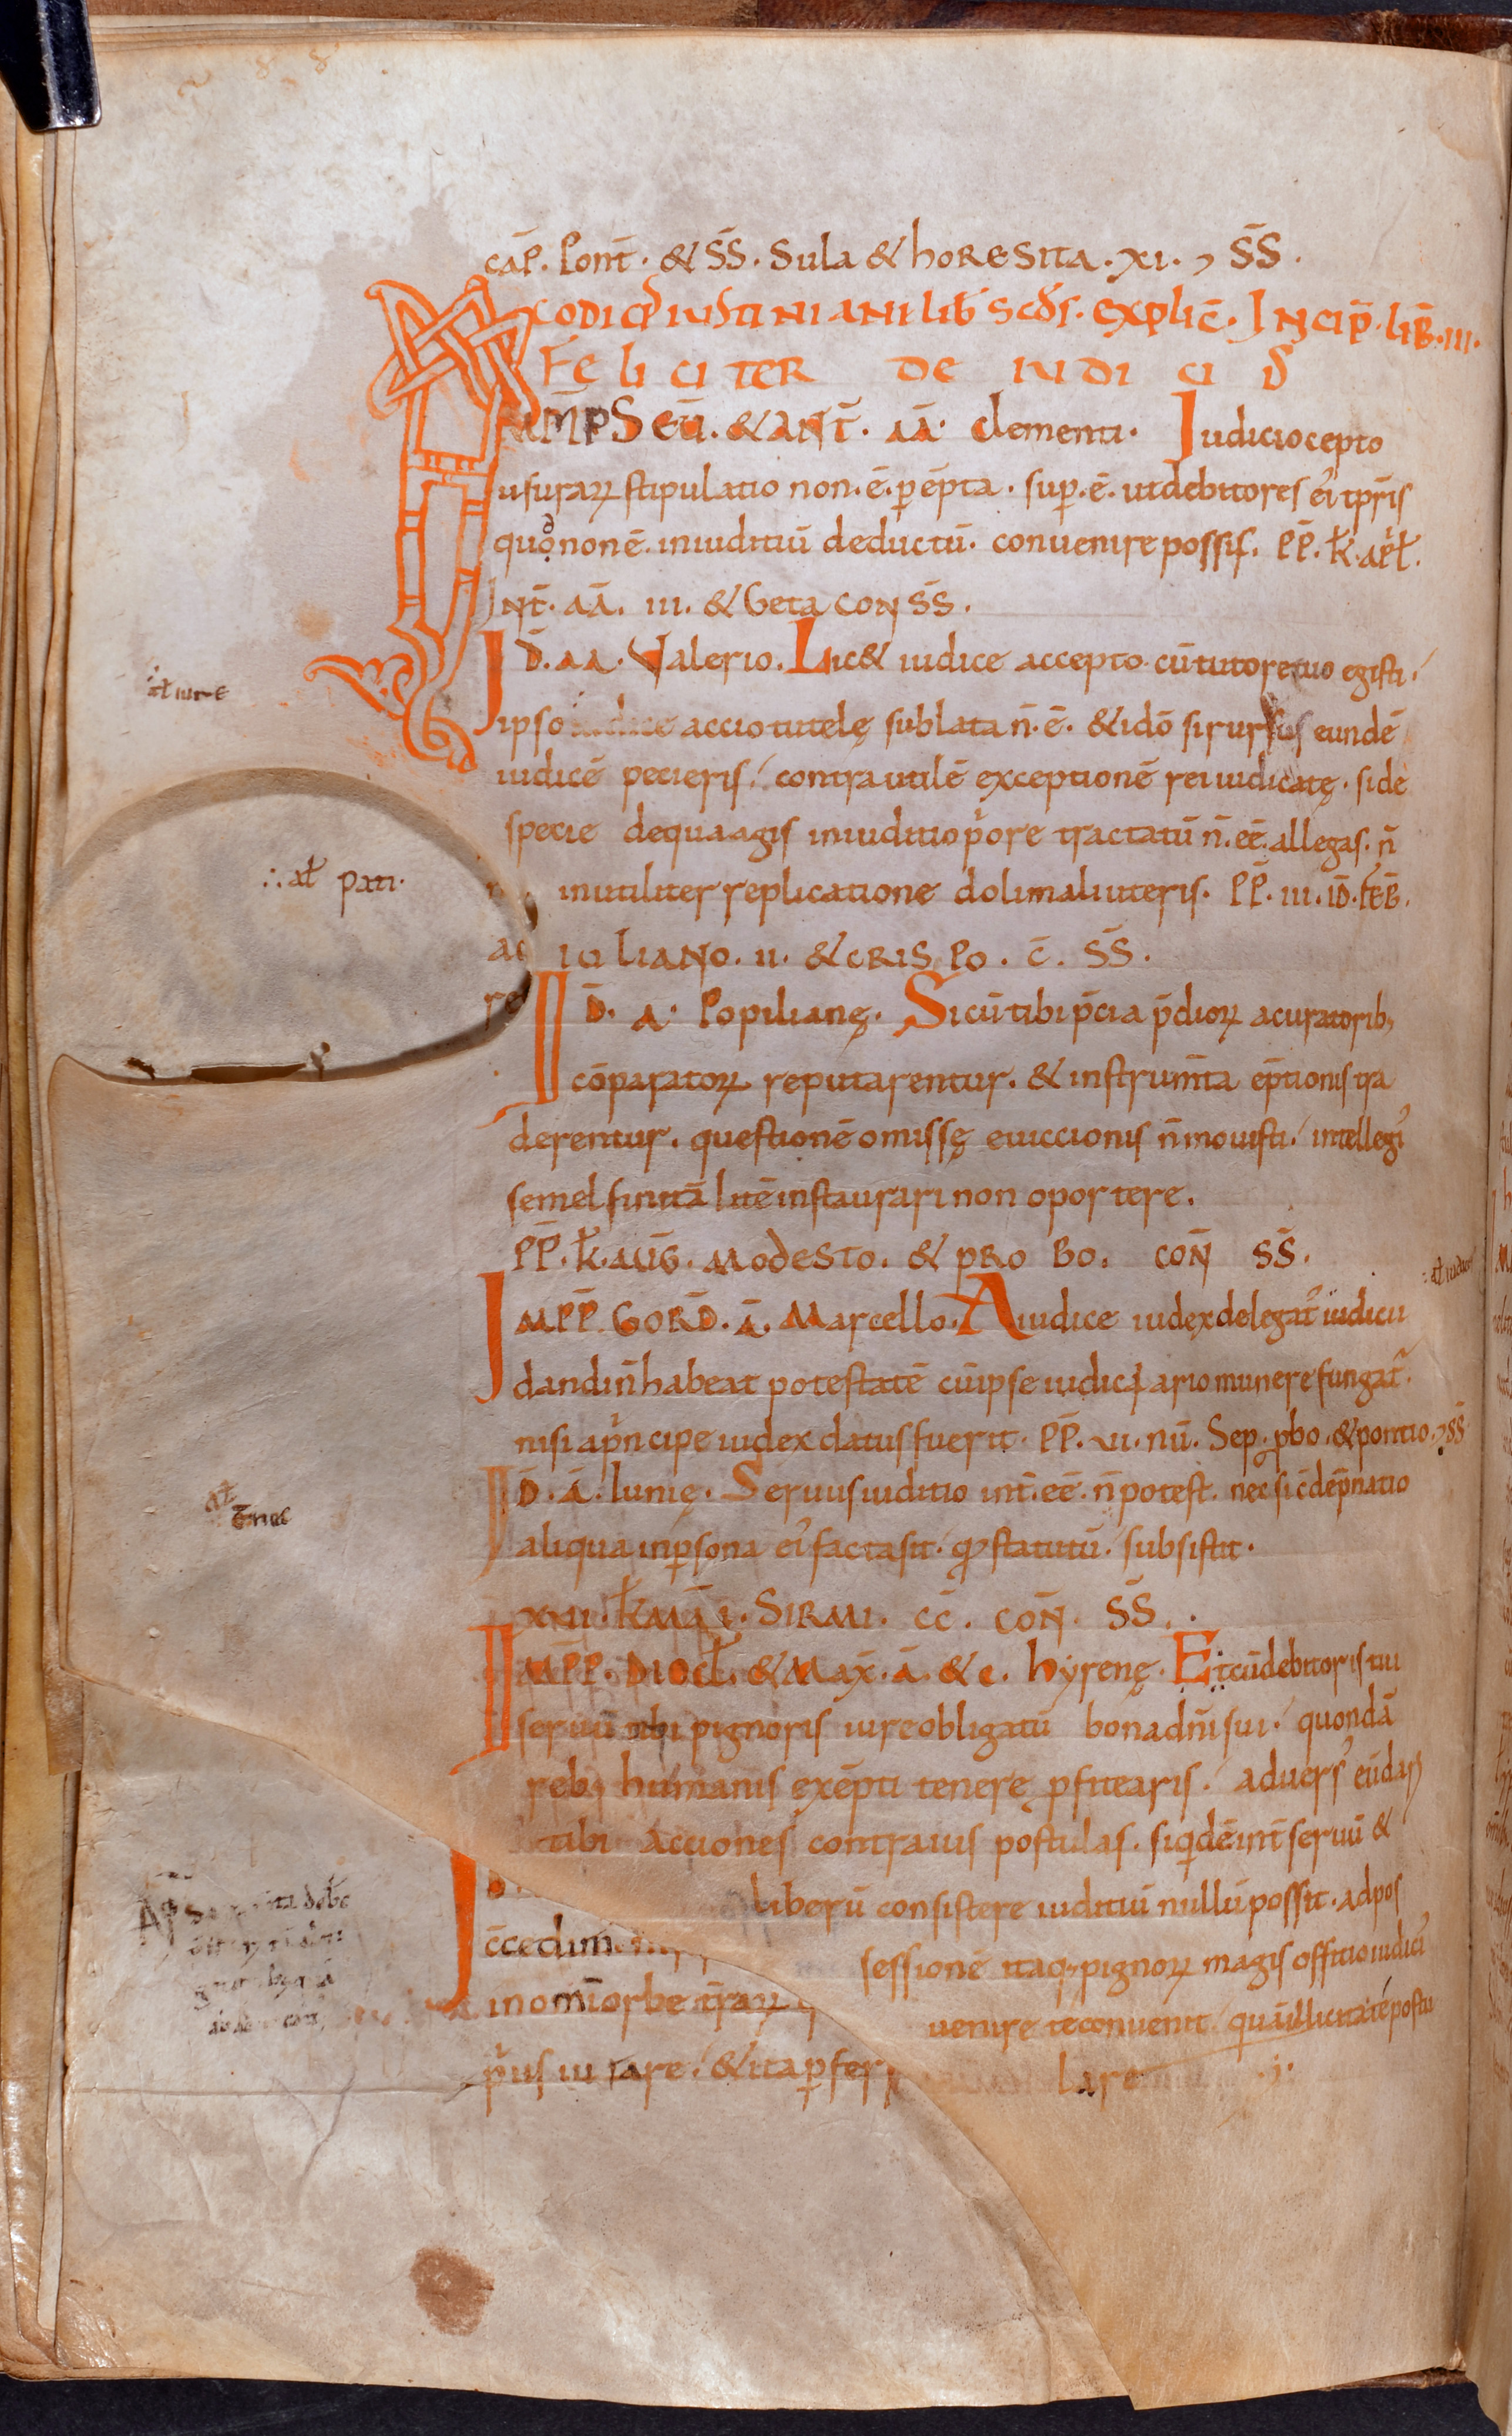 cap̄. Pont̄. & S̄S̄. Sula & hoRESita. XI. S̄S̄.
CODICIS IUSTINIANI LIB̄ SCDS. EXPLIC̄. INCIP̄. LIB̄. III.
FELICITER DE IUDICIIS
IM̄P SEŪ. & ANT̄. ĀĀ. Clementi. Iudicio cepto
usurarꝝ stipulatio non. ē. p̄ ēpta. sup. ē. ut debitores ei᾽ tp̄ris
quod non ē. in iuditiū deductū. convenire possis. P̄P̄. k̄. ap̄l̄.
ANT̄. ĀĀ. III. & Geta CON S̄S̄.
ID̄. AA. Valerio. Lic& iudice accepto cū tutore tuo egisti.
al̄ iure
ipso iudice accio tutelę sublata n̄. ē. & idō si rursus eundē
iudicē pecieris. contra utilē exceptionē rei iudicatę. si de
specie de qua agis in iuditio p᾽ore tractatū n̄. eē. allegas. n̄
∴ al̄ pati.
inutiliter replicatione doli mali uteris. P̄P̄. III. ID̄. FEB̄.
IULIANO. II. & CRISPO. c̄. S̄S̄.
ID̄. A. Popilianę. Si cū tibi p̄cia p̄diorꝝ a curatorib;
cōparatorꝝ reputarentur. & instrum̄ta ēptionis tra
derentur. questionē omissę eviccionis n̄ movisti. intellegi᾽
semel finitā litē instaurari non oportere.
P̄P̄. k̄. AUG̅. Modesto. & PRO BO. CON̄ S̄S̄.
IM̄P̄P̄ GORD̄. Ā. Marcello. A iudice iudex delegat᾽ iudicii
dandi n̄ habeat potestatē cū ipse iudiciario munere fungat᾽.
nisi a p᾽ncipe iudex datus fuerit. P̄P̄. VI. nū. Sep̄. pbo. & pontio. S̄S̄
ID̄. Ā. Iunię. Servus iuditio int̄. eē. n̄ potest. nec si c̄dēpnatio
al̄
ē nec
aliqua in p̱sona ei᾽ facta sit. qd statutū. subsistit.
XVII. k̄ MAI. SIRMI. CC̄. CON̄. S̄S̄.
IM̄P̄P̄. DIOCL̄. & Max̄. Ā. & C. hyrenę. Et cū debitoris tui
servū tibi pignoris iure obligatū bona dn̄i sui. quondā
reb; humanis exēpti tenere p̱fitearis. advers᾽ eū darꝫ
tibi acciones contra ius postulas. siqdē int̄ servū &
liberū consistere iuditiū nullū possit. ad pos
sessionē itaq; pignorꝝ magis offitio iudici᾽
venire te convenit. quā illicita te postu
lare
c̄cedim
in om̄i orbe t̄rarꝝ
p᾽us iurare. & ita p̱fer